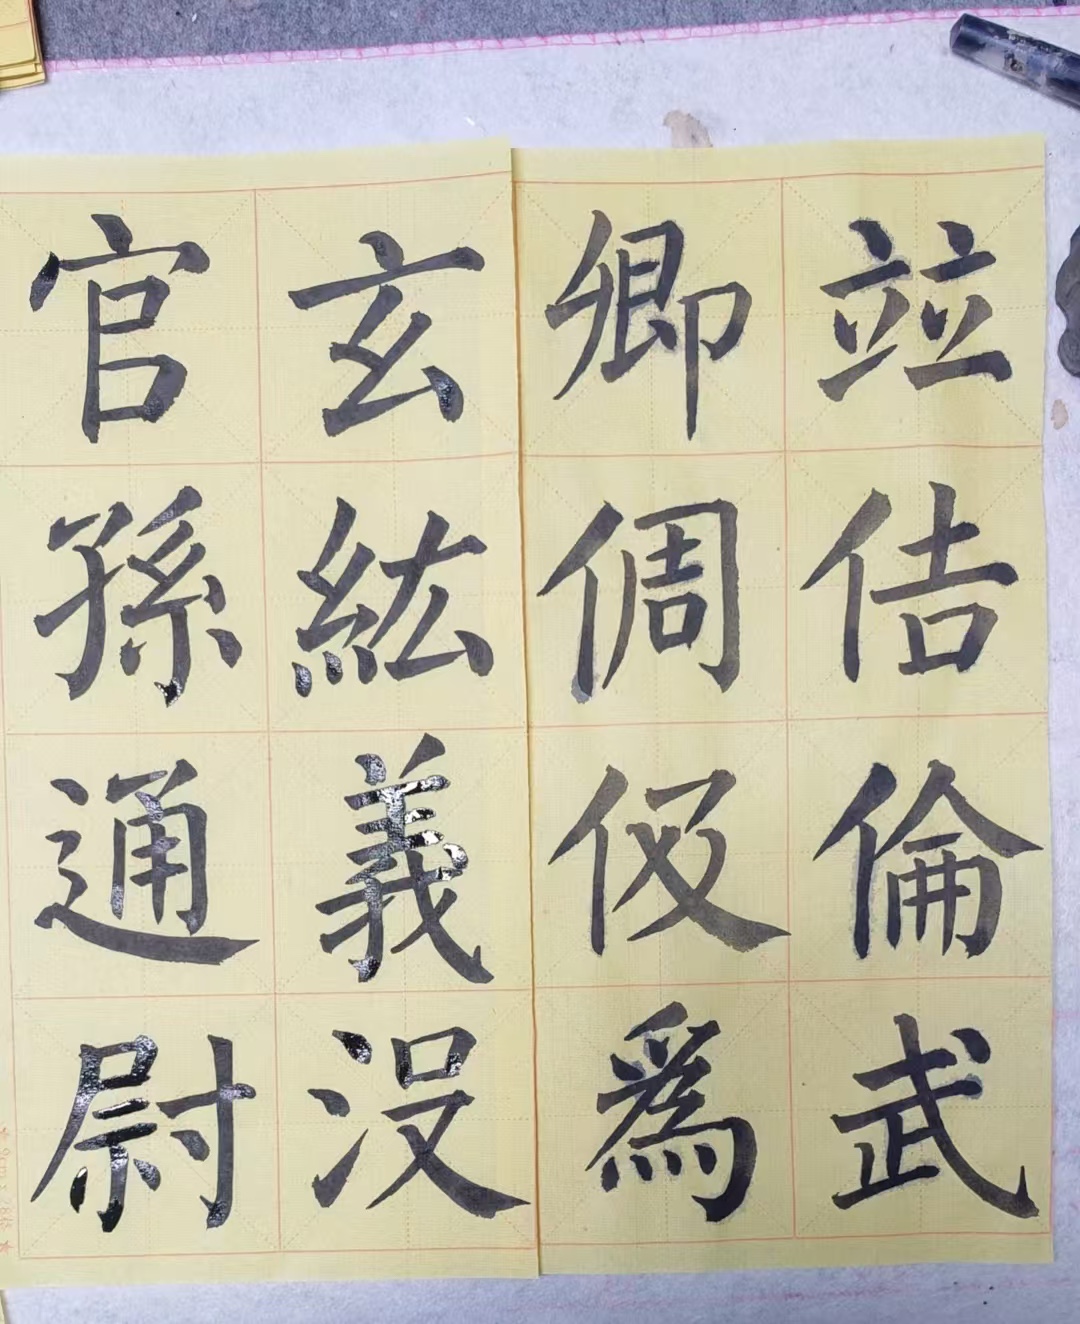 卿竝
倜佶
伋倫
為武
官玄
孫紘
通義
尉沒